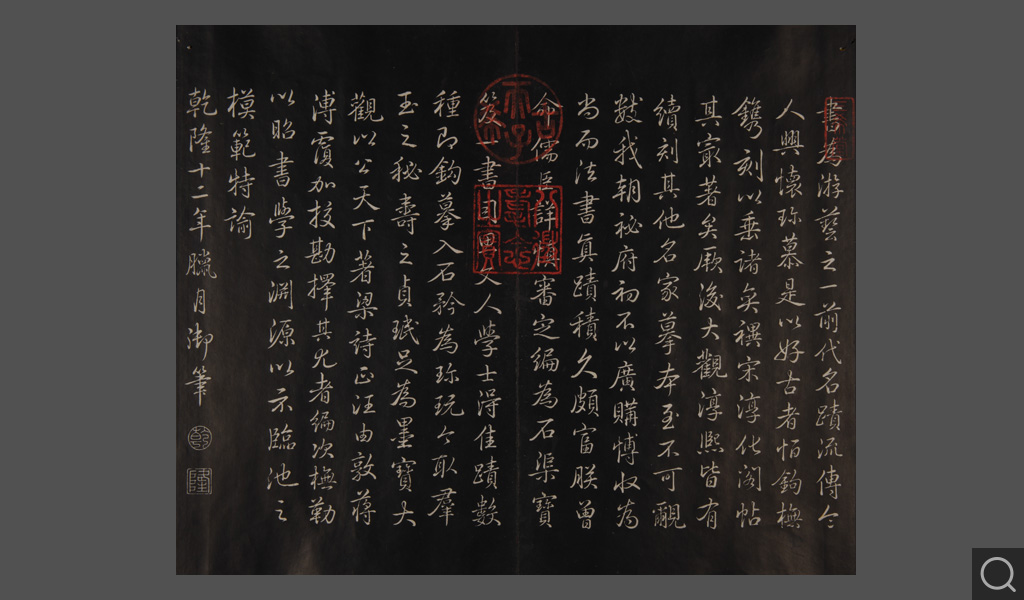 書為游藝之一前代名蹟流傳令
人興懷珍慕是以好古者恆鈎橅
鐫刻以垂諸奕禩宋淳化閣帖
其最著矣厥後大觀淳熙皆有
續刻其他名家摹本至不可覼
數我朝祕府初不以廣購博收為
尚而法書真蹟積久頗富朕曾
命儒臣詳慎審定編為石渠寶
笈一書因思文人學士得佳蹟數
種即鈎摹入石矜為珍玩今取羣
玉之秘壽之貞珉足為墨寶大
觀以公天下著梁詩正汪由敦蔣
溥覆加校勘擇其尤者編次橅勒
以昭書學之淵源以示臨池之
模範特諭
乾隆十二年臘月御筆
乾
隆
古稀天子
八徵耄念之寶